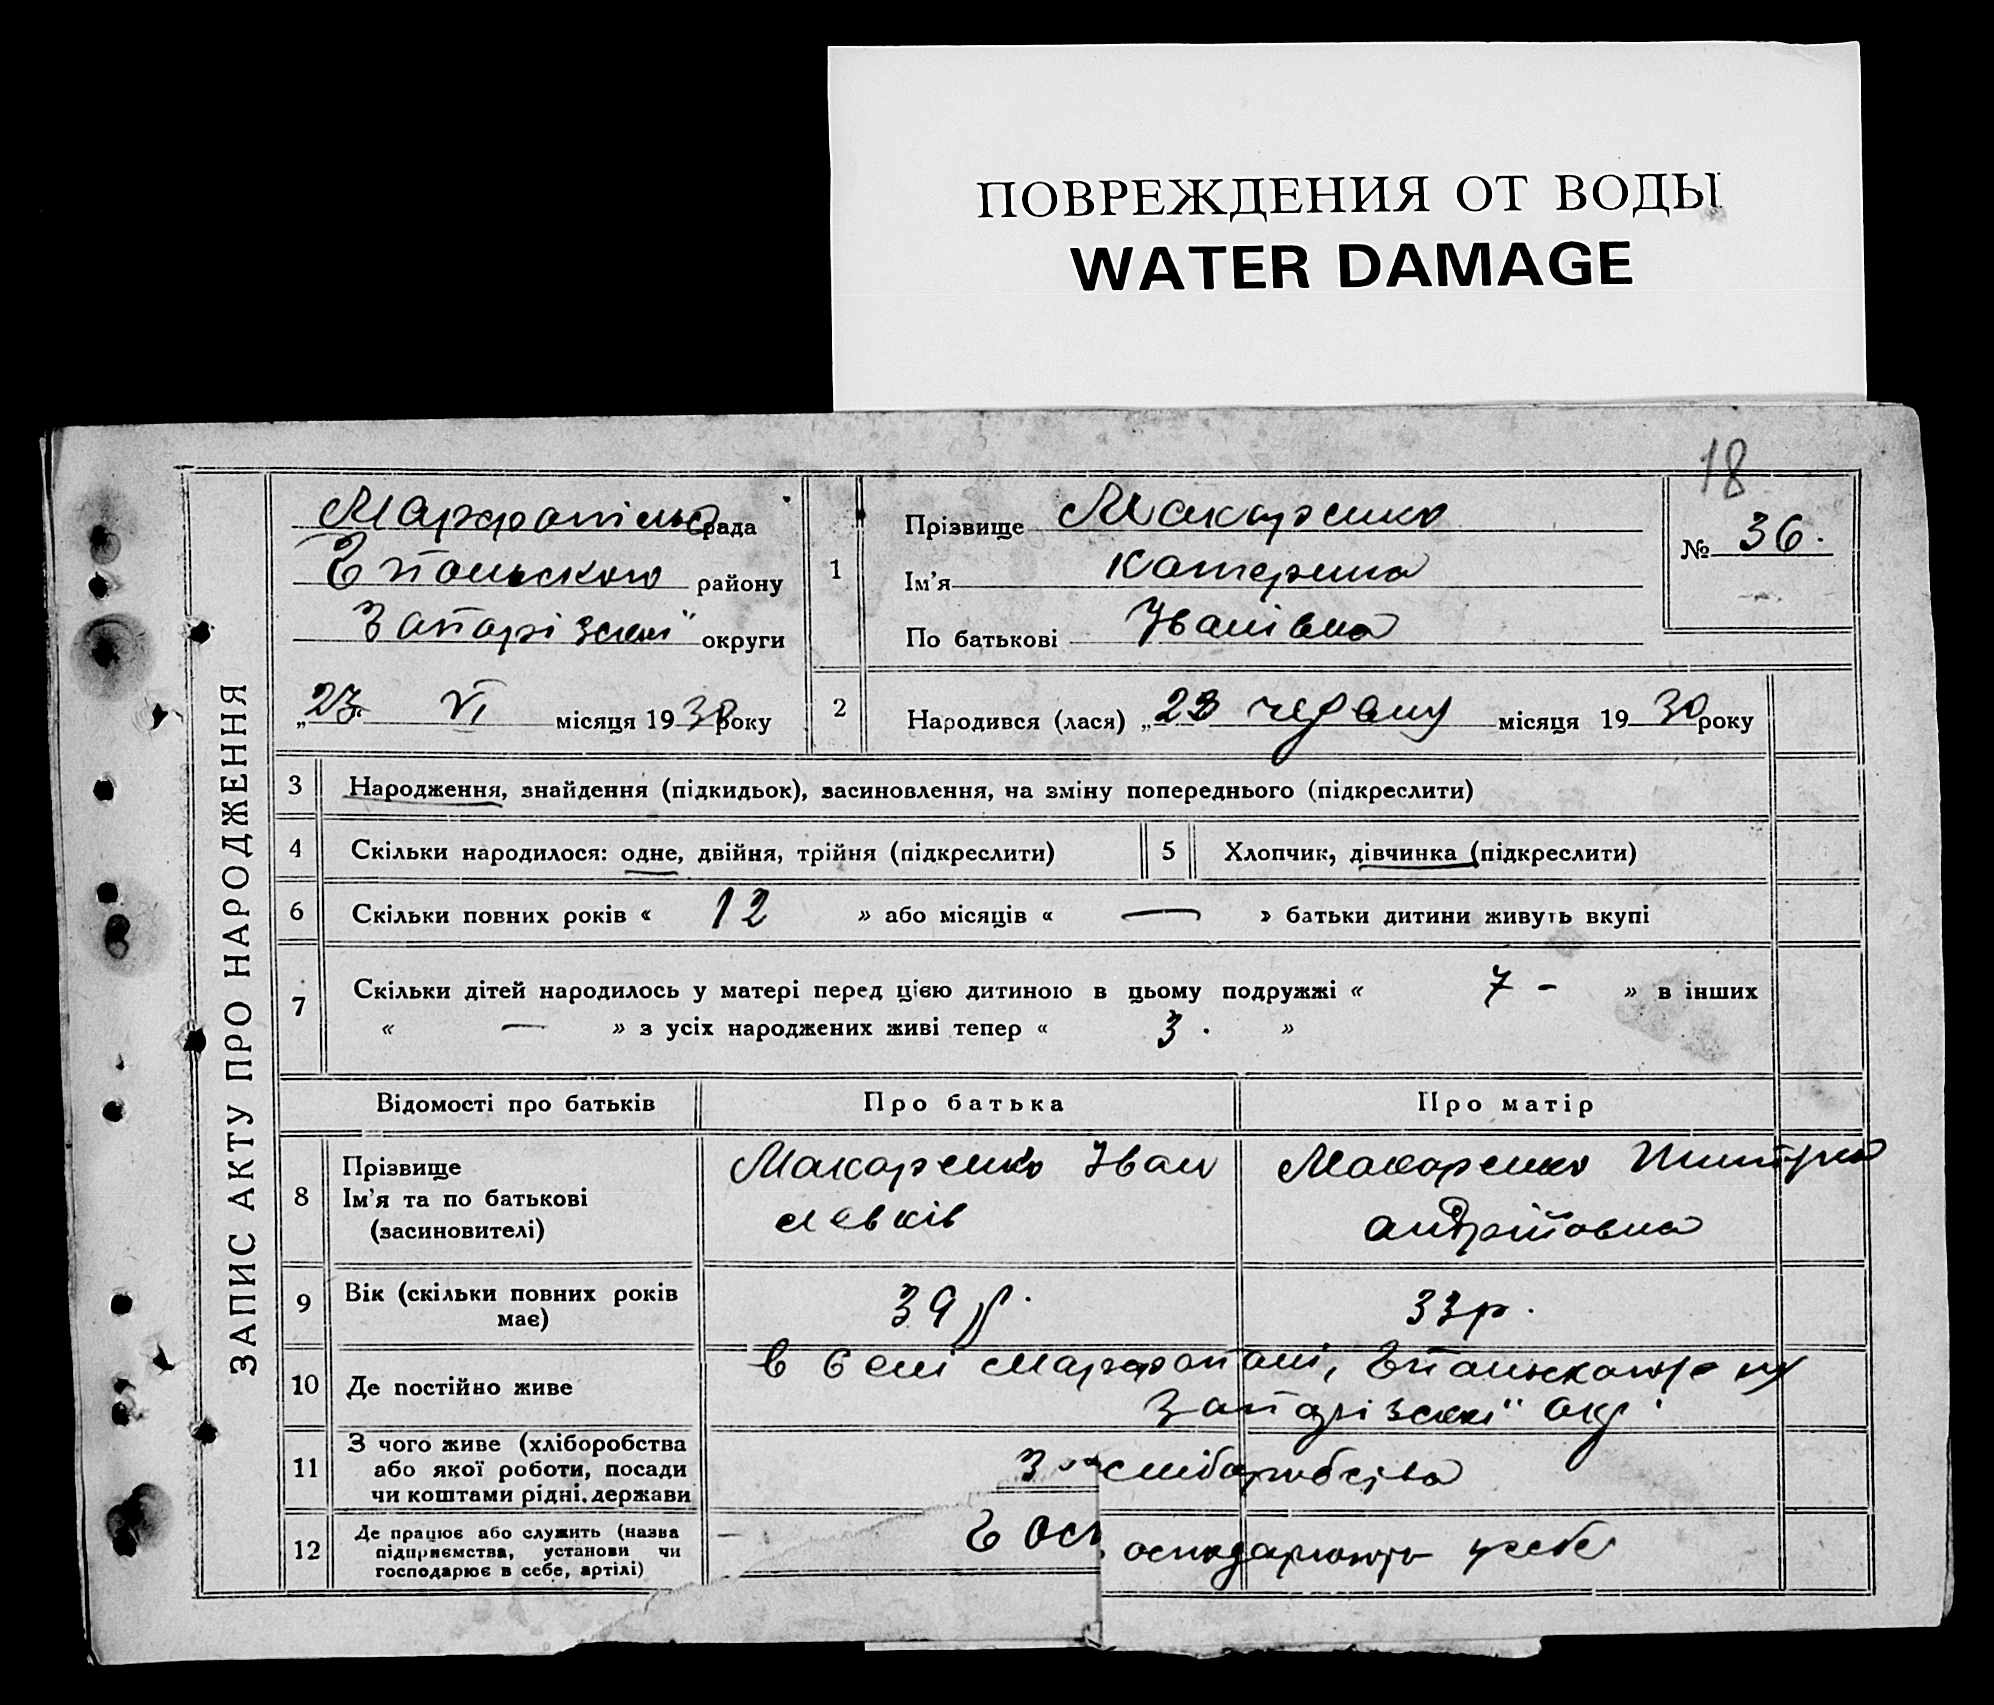 ПОВРЕЖДЕНИЯ ОТ ВОДЫ
WATER DAMAGE
18
ЗАПИС АКТУ ПРО НАРОДЖЕННЯ
рада
району
Запорізської округи
„23“ VI місяця 1930 року
1
Прізвище Макаренко
Ім'я Катерина
По батькові Іванівна
№ 36.
2 Народився (лася) „23 червня місяця 1930 року
3 Народження, знайдення (підкидьок), засиновлення, на зміну попереднього (підкреслити)
4 Скільки народилося: одне, двійня, трійня (підкреслити)
5 Хлопчик, дівчинка (підкреслити)
6 Скільки повних років « 12 » або місяців « — » батьки дитини живуть вкупі
7 Скільки дітей народилось у матері перед цією дитиною в цьому подружжі « 7 - » в інших
« — » з усіх народжених живі тепер « 3 . »
Відомості про батьків
Про батька
Про матір
8 Прізвище
Ім'я та по батькові
(засиновителі)
Макаренко Іван
Левків
Макаренко
Андріївна
9 Вік (скільки повних років
має)
39 р.
33 р.
10 Де постійно живе
в селі
Запорізської окр.
11 З чого живе (хліборобства
або якої роботи, посади
чи коштами рідні. держави
З хліборобства
12 Де працює або служить (назва
підприємства, установи чи
господарює в себе, артілі)
осподарюють у себе